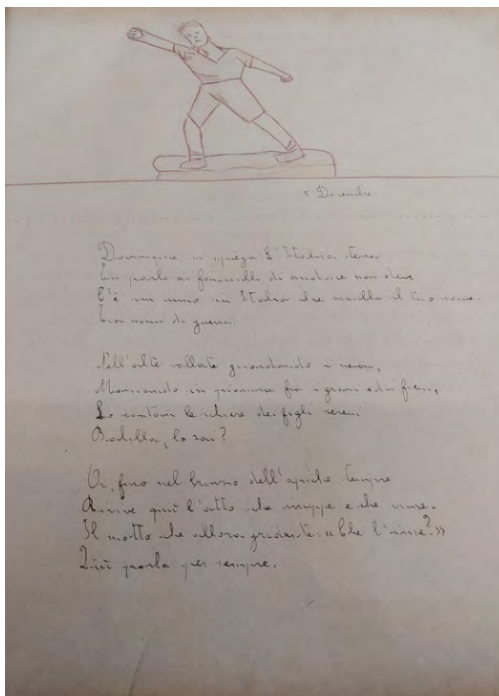 5 Dicembre
Dovunque si spiega l'Italica terra
Tu parli ai fanciulli di
C'è un inno in Italia che squilla il tuo nome.
Tra nomi di guerra.
Nell'alte vallate guardando i nevai,
Marciando in pianura fra i grani ed i fieni,
Lo cantan le schiere dei figli sereni
Balilla, lo sai?
Or, fuso nel bronzo dell'apriche tempre
Rivive qui l'atto che ruppe e che vinse.
Il motto che allora gridasti: «Che l'inse?»
Qui parla per sempre.